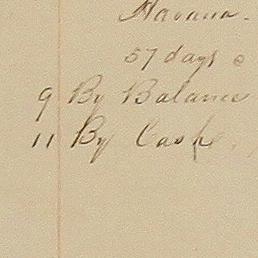 Havana.
57 days @
9 By Balance
11 By Cash.